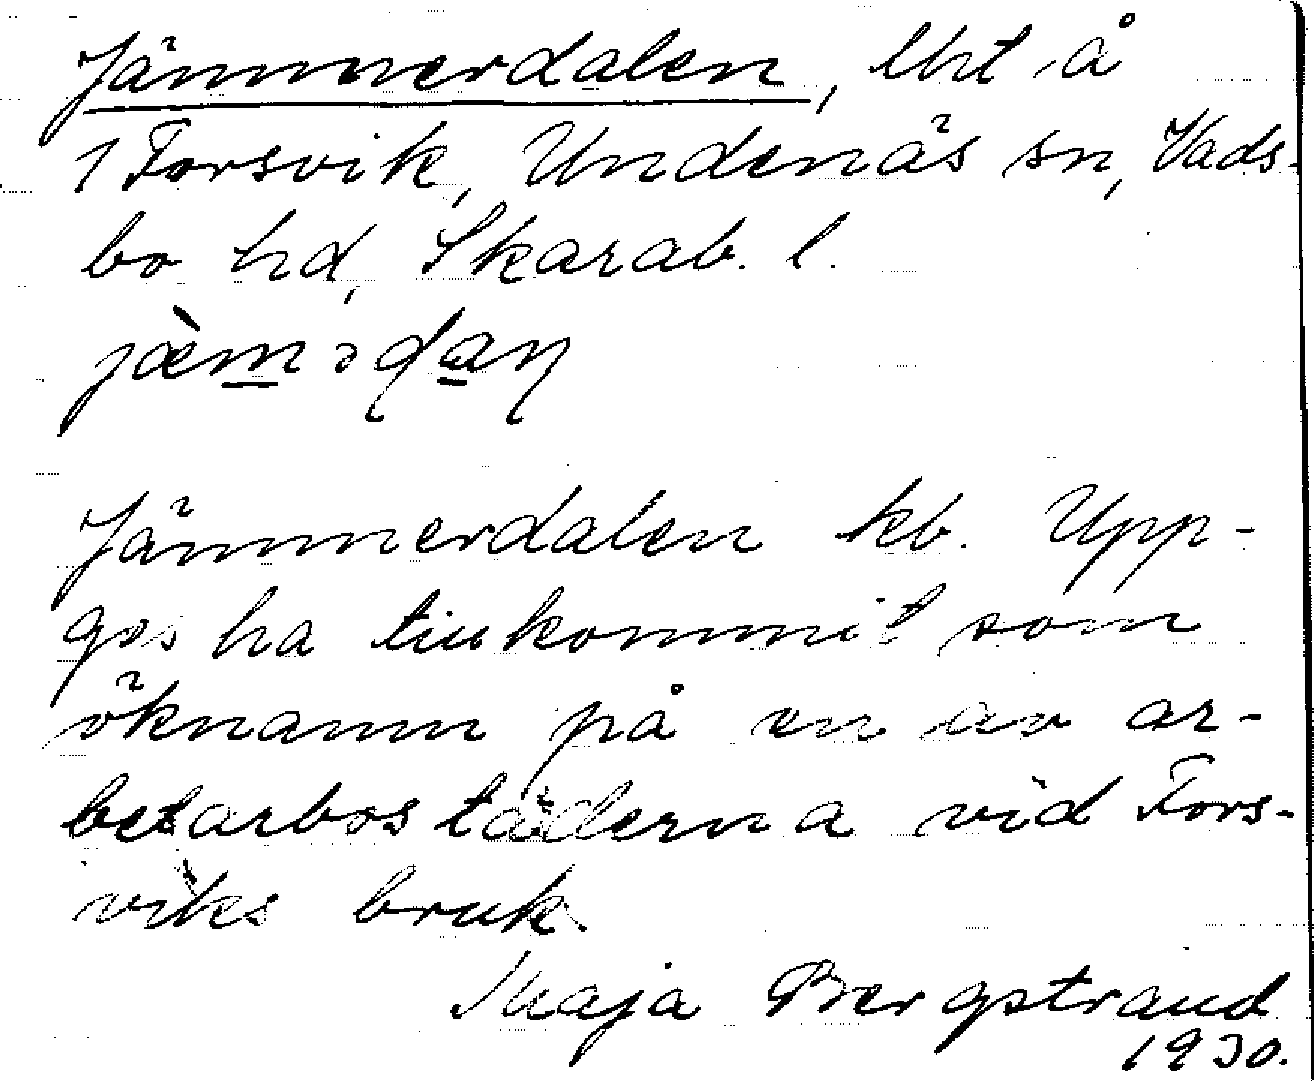 Jämmerdalen, lht å
1 Forsvik, Undenäs sn, Vads-
bo hd, Skarab. l.
jæ̀mədaɳ
Jämmerdalen kb. Upp-
ges ha tillkommit som
öknamn på en av ar-
betarbostäderna vid Fors-
viks bruk.
Maja Bergstrand
1930.